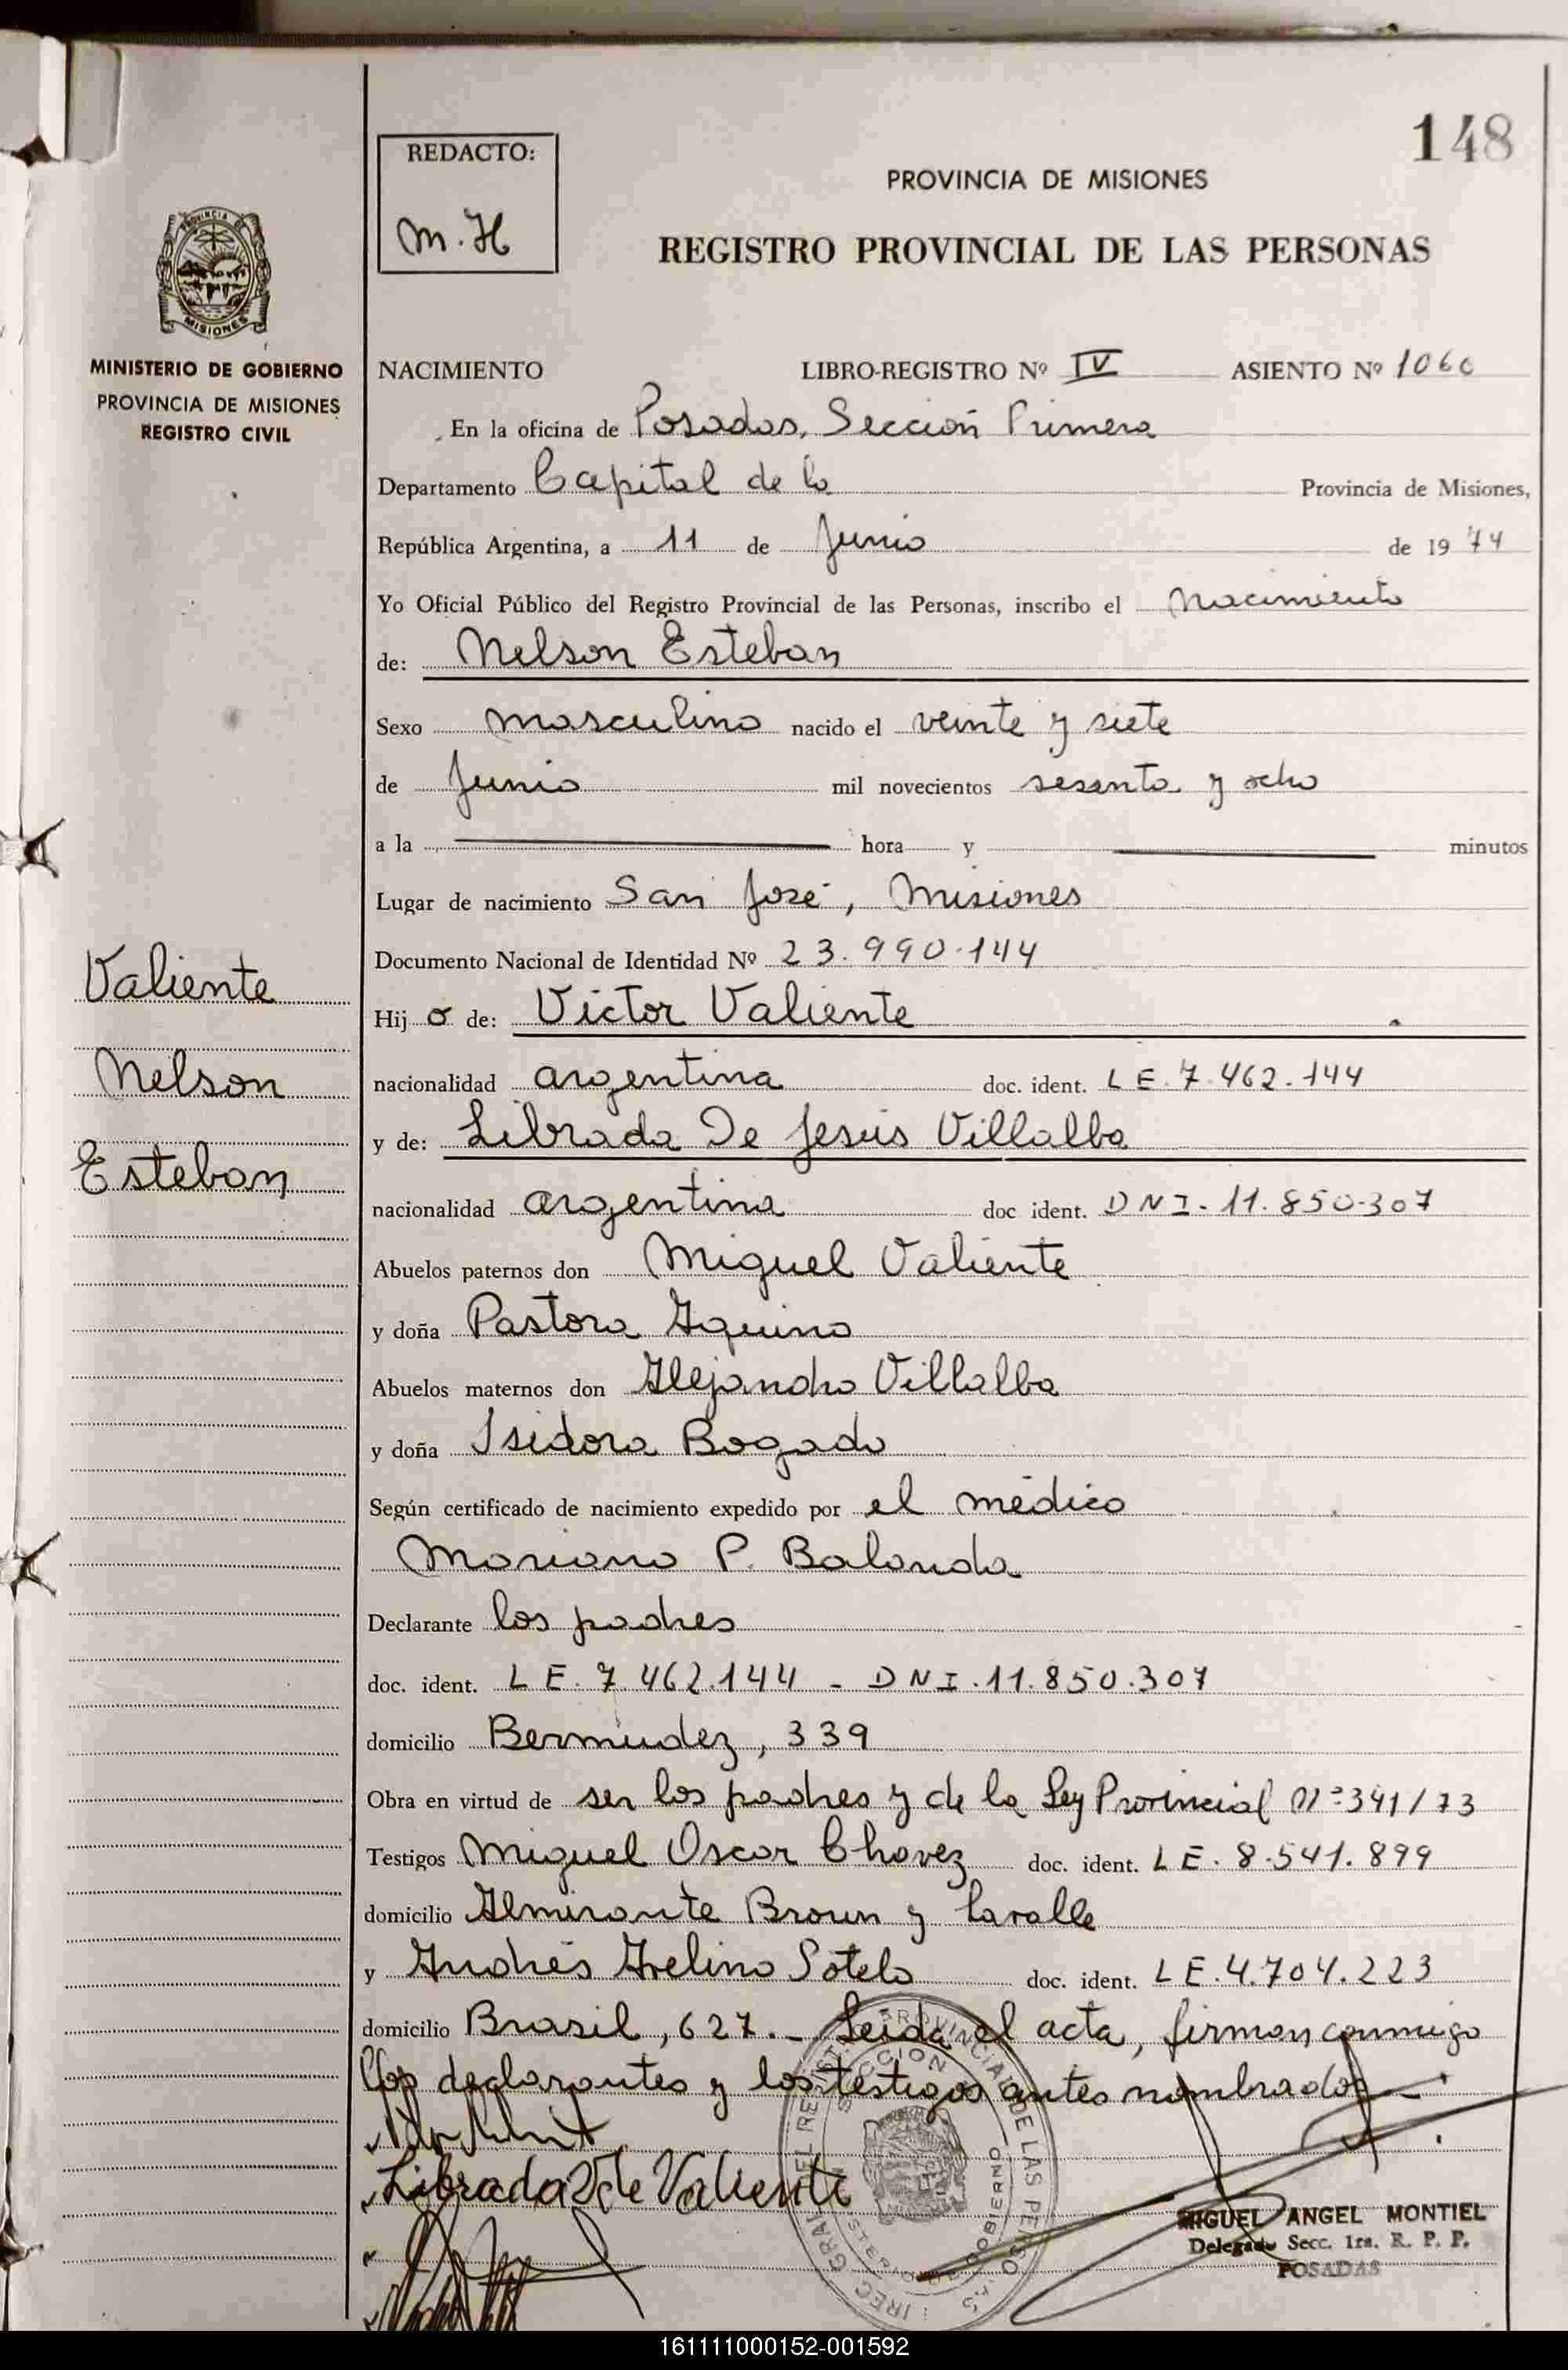 148
REDACTO:
M.H
PROVINCIA DE MISIONES
REGISTRO PROVINCIAL DE LAS PERSONAS
PROVINCIA DE
MISIONES
MINISTERIO DE GOBIERNO
PROVINCIA DE MISIONES
REGISTRO CIVIL
NACIMIENTO LIBRO-REGISTRO Nº IV ASIENTO Nº 1060
En la oficina de Posadas, Sección Primera
Departamento Capital de la Provincia de Misiones,
República Argentina, a 11 de Junio de 1974
Yo Oficial Público del Registro Provincial de las Personas, inscribo el Nacimiento
de: Nelson Esteban
Sexo masculino nacido el veinte y siete
de Junio mil novecientos sesenta y ocho
a la hora y minutos
Lugar de nacimiento San José, Misiones
Documento Nacional de Identidad Nº 23.990.144
Valiente
Nelson
Esteban
Hijo de: Victor Valiente
nacionalidad argentina doc. ident. L E. 7.462.144
y de: Librada De Jesús Villalba
nacionalidad argentina doc ident. D N I. 11.850.307
Abuelos paternos don Miguel Valiente
y doña Pastora Aquino
Abuelos maternos don Alejandro Villalba
y doña Isidora Bogado
Según certificado de nacimiento expedido por el médico
Mariano P. Balanda
Declarante los padres
doc. ident. L E. 7.462.144 - D N I. 11.850.307
domicilio Bermudez, 339
Obra en virtud de ser los padres y de la Ley Provincial Nº 341/73
Testigos Miguel Oscar Chavez doc. ident. L E. 8.541.899
domicilio Almirante Brown y Lavalle
y Andrés Avelino Sotelo doc. ident. L E. 4.704.223
domicilio Brasil, 627.- Leída el acta, firman conmigo
los declarantes y los testigos antes nombrados.-
Librada V de Valiente
MIGUEL ANGEL MONTIEL
Delegado Secc. 1ra. R. P. P.
POSADAS
161111000152-001592